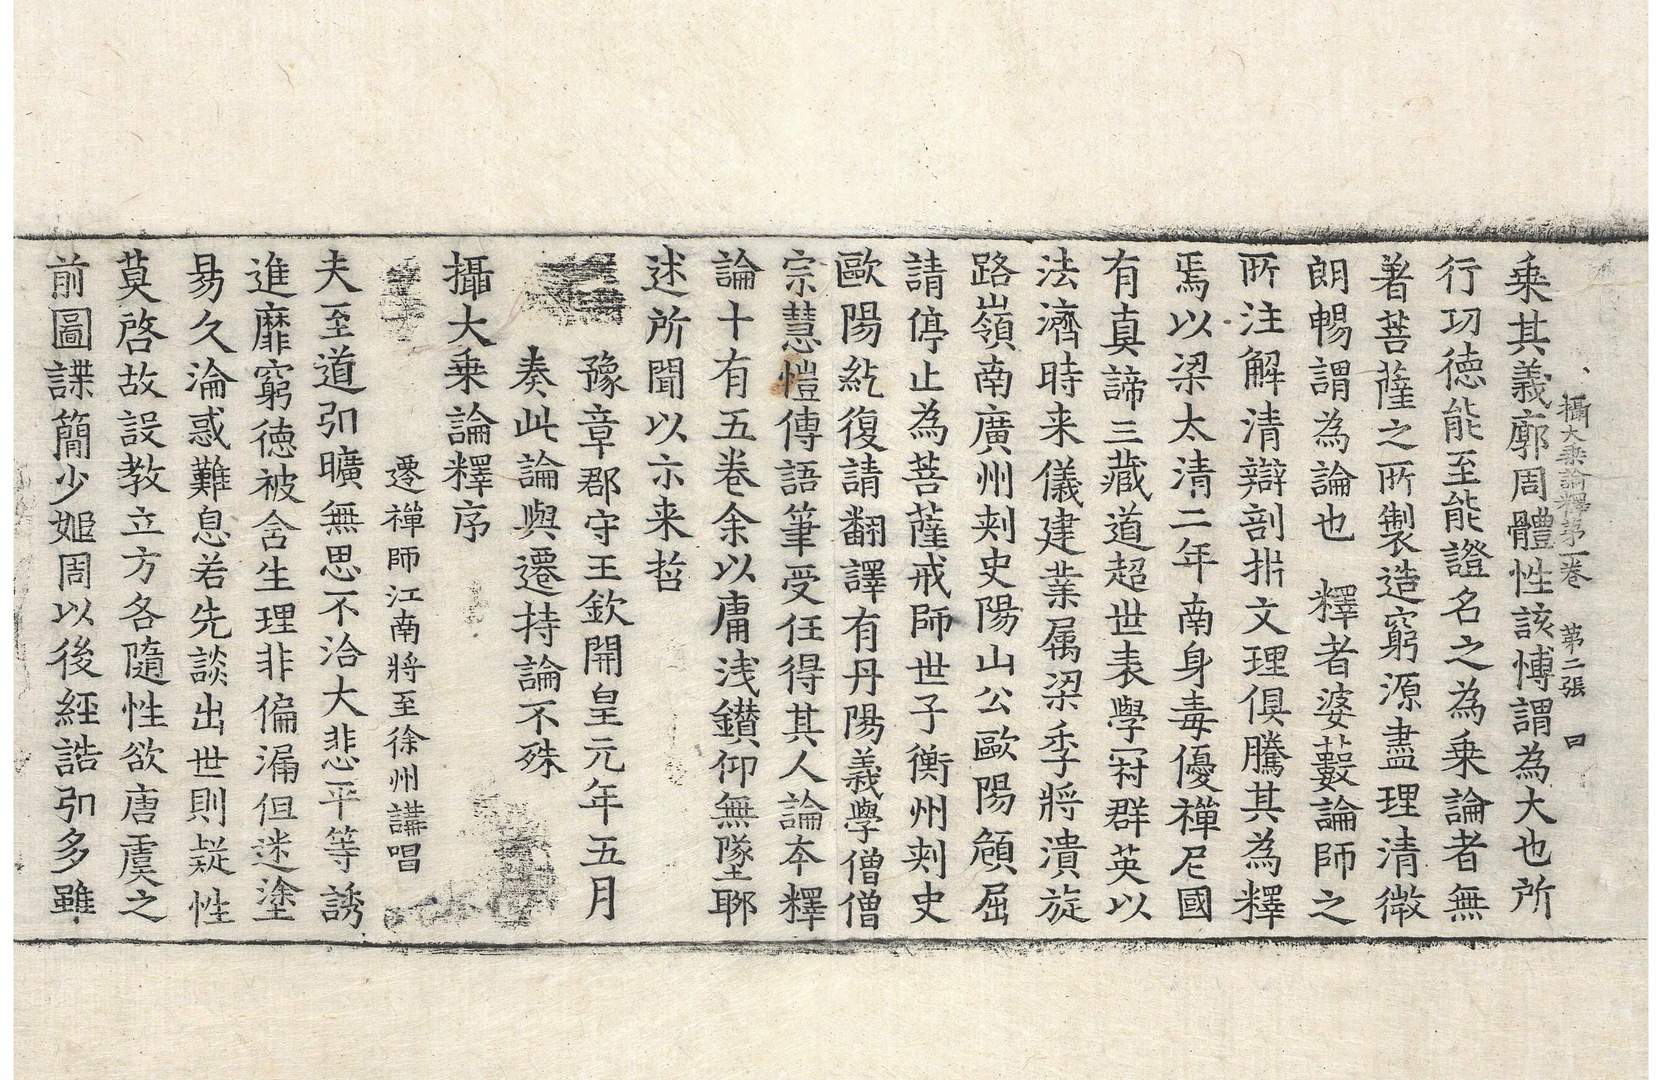 攝大乗論釋第一卷 第二張 曰
乗其義廓周體性該愽謂為大也所
行功徳能至能證名之為乗論者無
著菩薩之所製造窮源盡理清微
朗暢謂為論也 釋者婆藪論師之
所注解清辯剖析文理俱騰其為釋
焉以梁太清二年南身毒優禪尼國
有真諦三藏道超世表學冠群英以
法濟時来儀建業属梁季將潰旋
路嶺南廣州刾史陽山公歐陽頠屈
請停止為菩薩戒師世子衡州刾史
歐陽紇復請翻譯有丹陽義學僧僧
宗慧愷傳語筆受任得其人論夲釋
論十有五卷余以庸浅鑚仰無墜聊
述所聞以示来哲
豫章郡守王欽開皇元年五月
奏此論與遷持論不殊
攝大乗論釋序
遷禪師江南將至徐州講唱
夫至道引曠無思不洽大悲平等誘
進靡窮徳被含生理非偏漏但迷塗
易久淪惑難息若先談出世則疑性
莫啓故設教立方各隨性欲唐虞之
前圖諜簡少姬周以後經誥引多雖